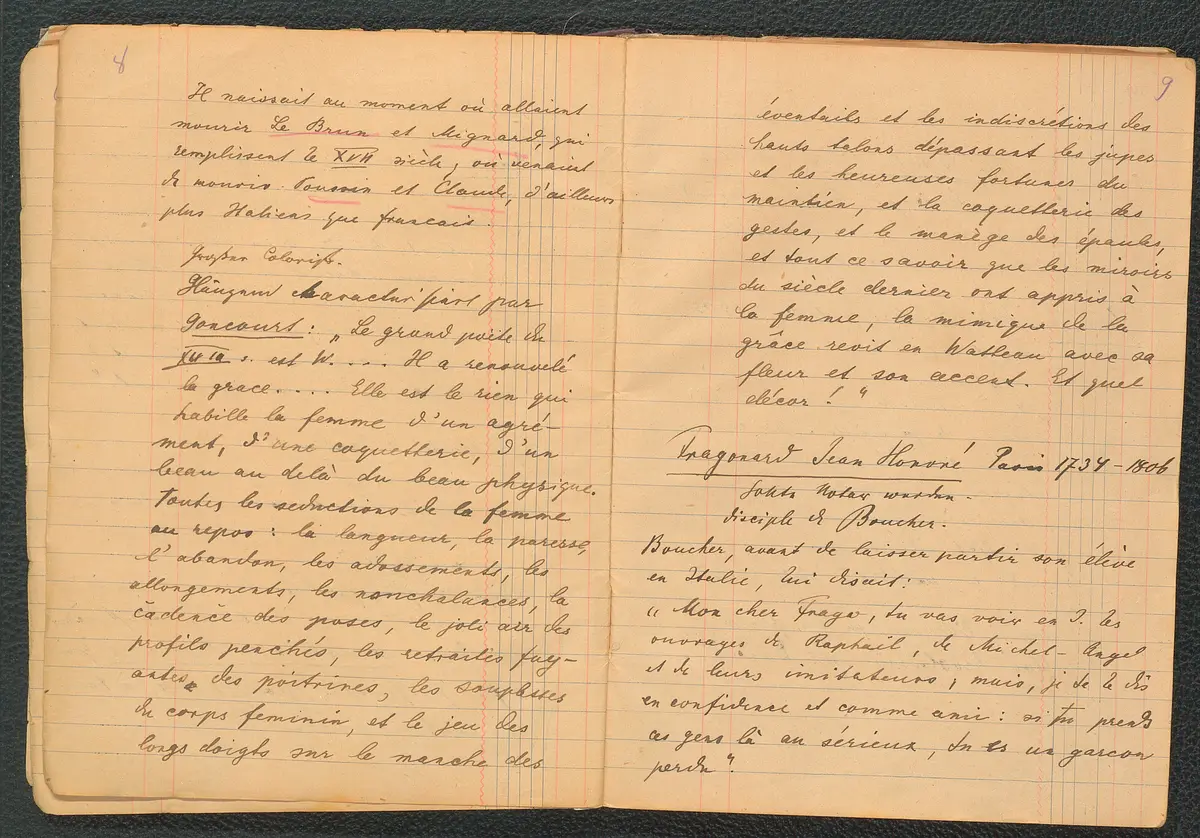 8
Il naissait au moment où allaient
mourir Le Brun et Mignard, qui
remplissent le XVII siècle, où venaient
de mourir Poussin et Claude, d'ailleurs
plus Italiens que francais.
Großer Colorist.
charakterisirt par
Goncourt: „Le grand poète du
XVIII s. est W.... Il a renouvelé
la grace.... Elle est le rien qui
habille la femme d'un agré-
ment, d'une coquetterie, d'un
beau au delà du beau physique.
Toutes les seductions de la femme
au repos: la langueur, la paresse,
l'abandon, les adossements, les
allongements, les nonchalances, la
cadence des poses, le joli air des
profils penchés, les retraites fuy-
antes des poitrines, les souplesses
du corps feminin, et le jeu des
longs doigts sur le manche des
9
éventails et les indiscrétions des
hauts talons dépassant les jupes
et les heureuses fortunes du
maintien, et la coquetterie des
gestes, et le manège des épaules,
et tout ce savoir que les miroirs
du siècle dernier ont appris à
la femme, la mimique de la
grâce revit en Watteau avec sa
fleur et son accent. Et quel
décor!"
Fragonard Jean Honoré Paris 1734-1806
sollte Notar werden.
disciple de Boucher.
Boucher, avant de laisser partir son élève
en Italie, lui disait:
„Mon cher Frago, tu vas voir en I. les
ouvrages de Raphaël, de Michel-Angel
et de leurs imitateurs; mais, je te le dis
en confidence et comme ami: si tu prends
ces gens là au sérieux, tu es un garcon
perdu".